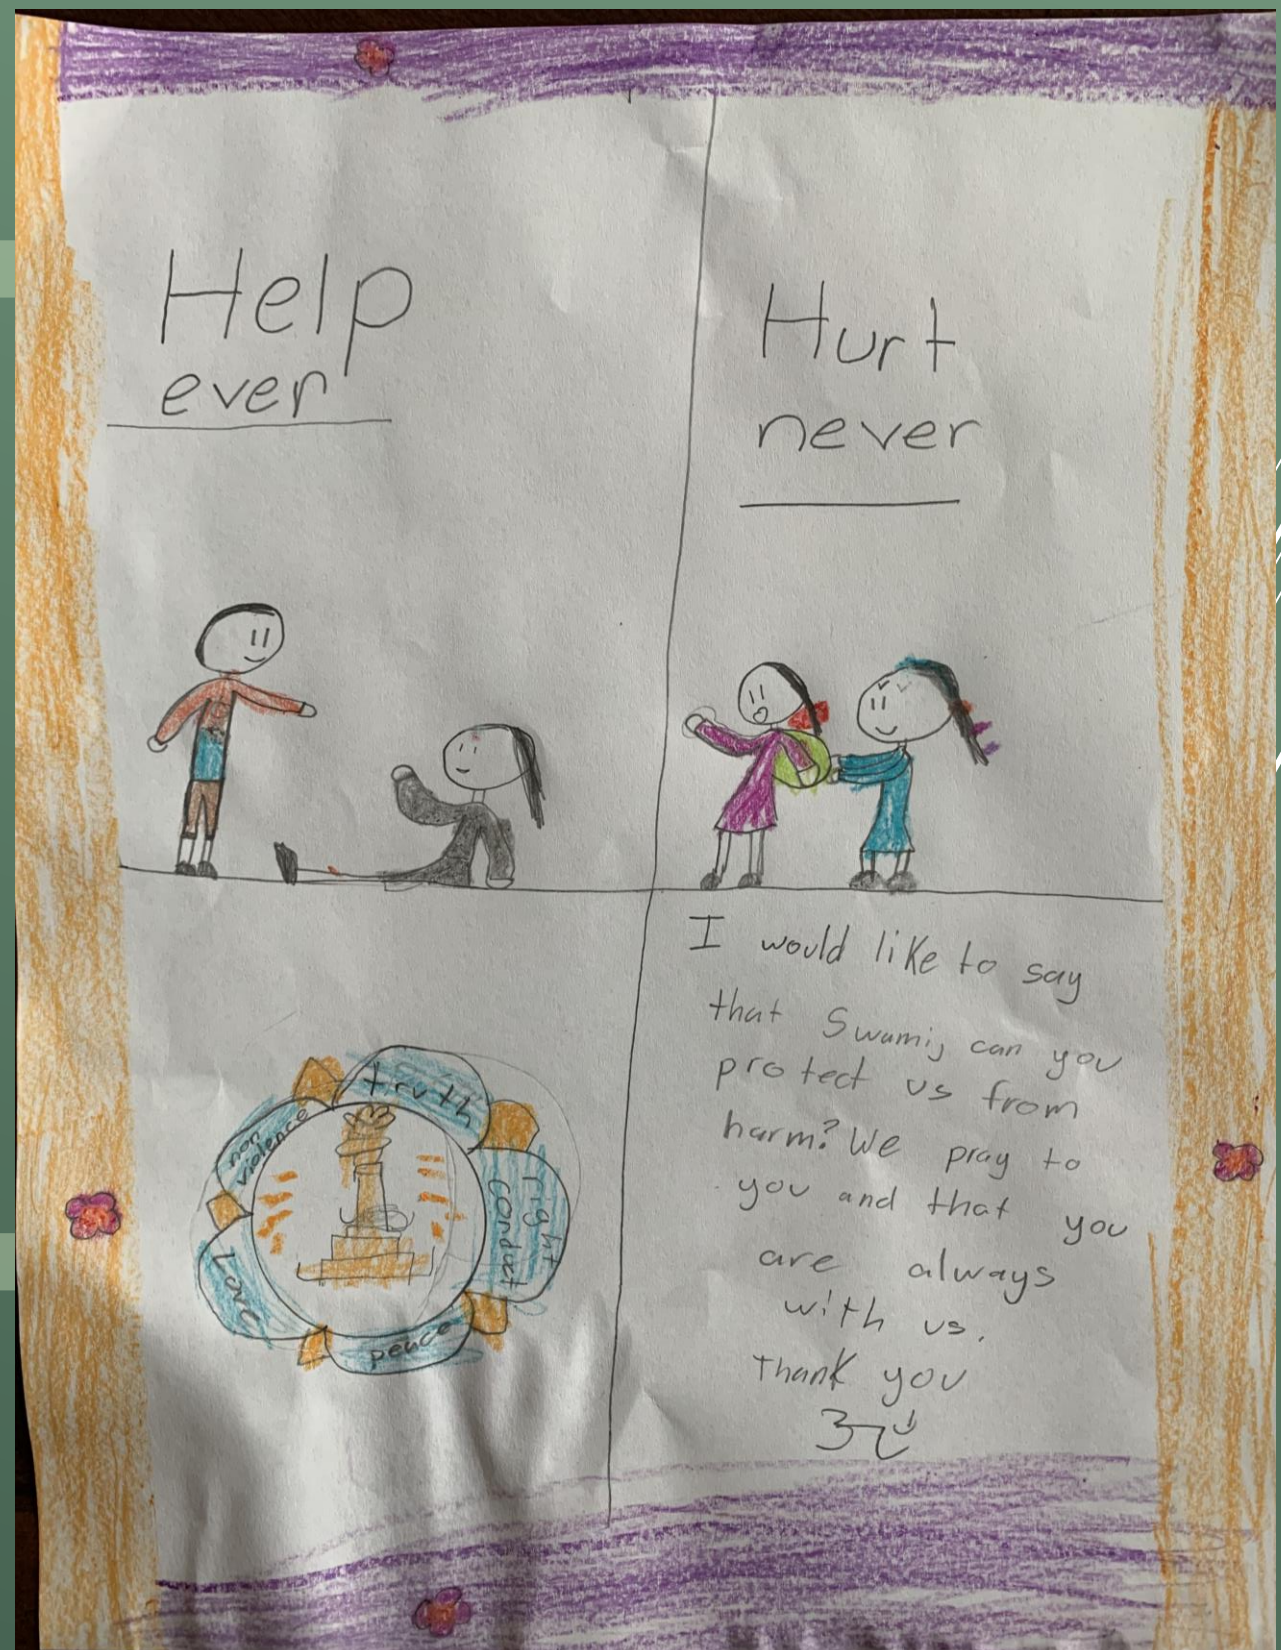 Help
ever
Hurt
never
truth
right
conduct
peace
Love
non
violence
I would like to say
that Swami, can you
protect us from
harm? We pray to
you and that you
are always
with us.
Thank you
ॐ